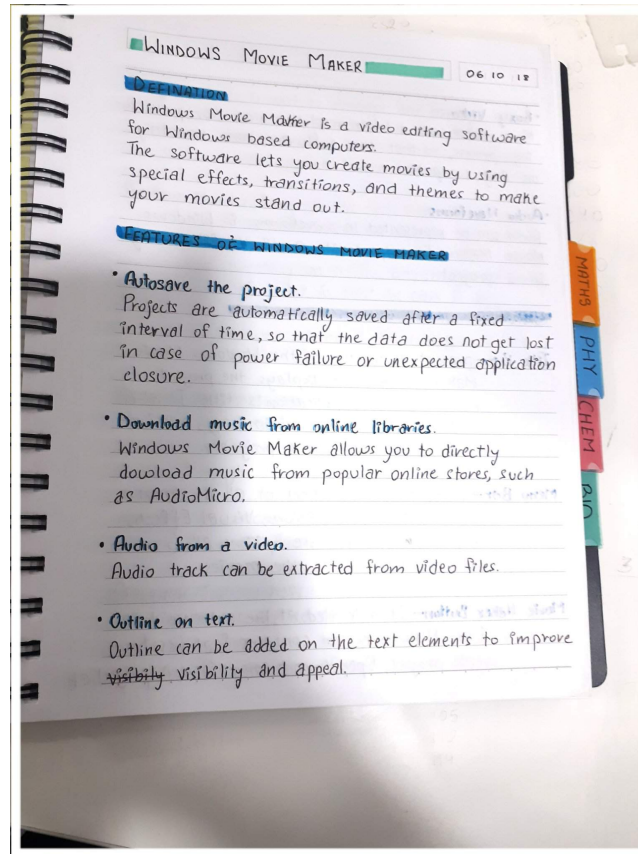 WINDOWS MOVIE MAKER
06 10 18
DEFINATION
Windows Movie Maker is a video editing software
for Windows based computers.
The software lets you create movies by using
special effects, transitions, and themes to make
your movies stand out.
FEATURES OF WINDOWS MOVIE MAKER
• Autosave the project.
Projects are automatically saved after a fixed
interval of time, so that the data does not get lost
in case of power failure or unexpected application
closure.
• Download music from online libraries.
Windows Movie Maker allows you to directly
dowload music from popular online stores, such
as AudioMicro.
• Audio from a video.
Audio track can be extracted from video files.
• Outline on text.
Outline can be added on the text elements to improve
visibily visibility and appeal.
MATHS
PHY
CHEM
BIO